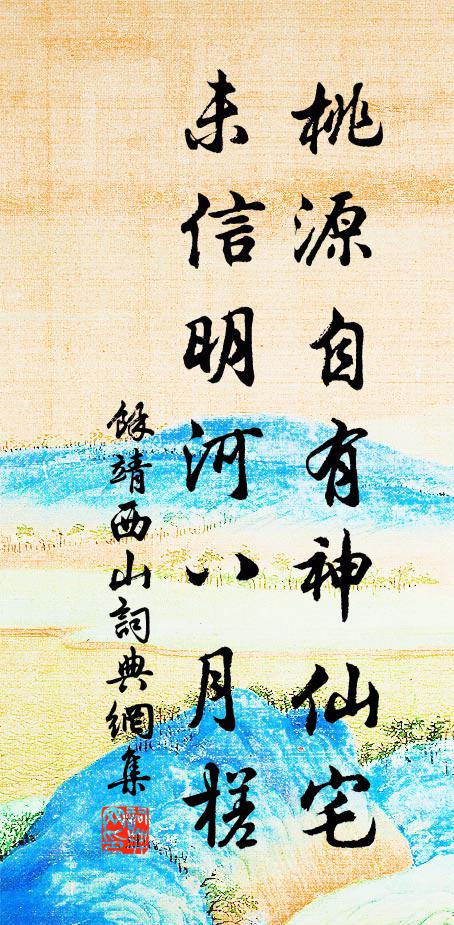 桃源自有神仙宅
未信明河八月槎
餘靖西山詞典網集